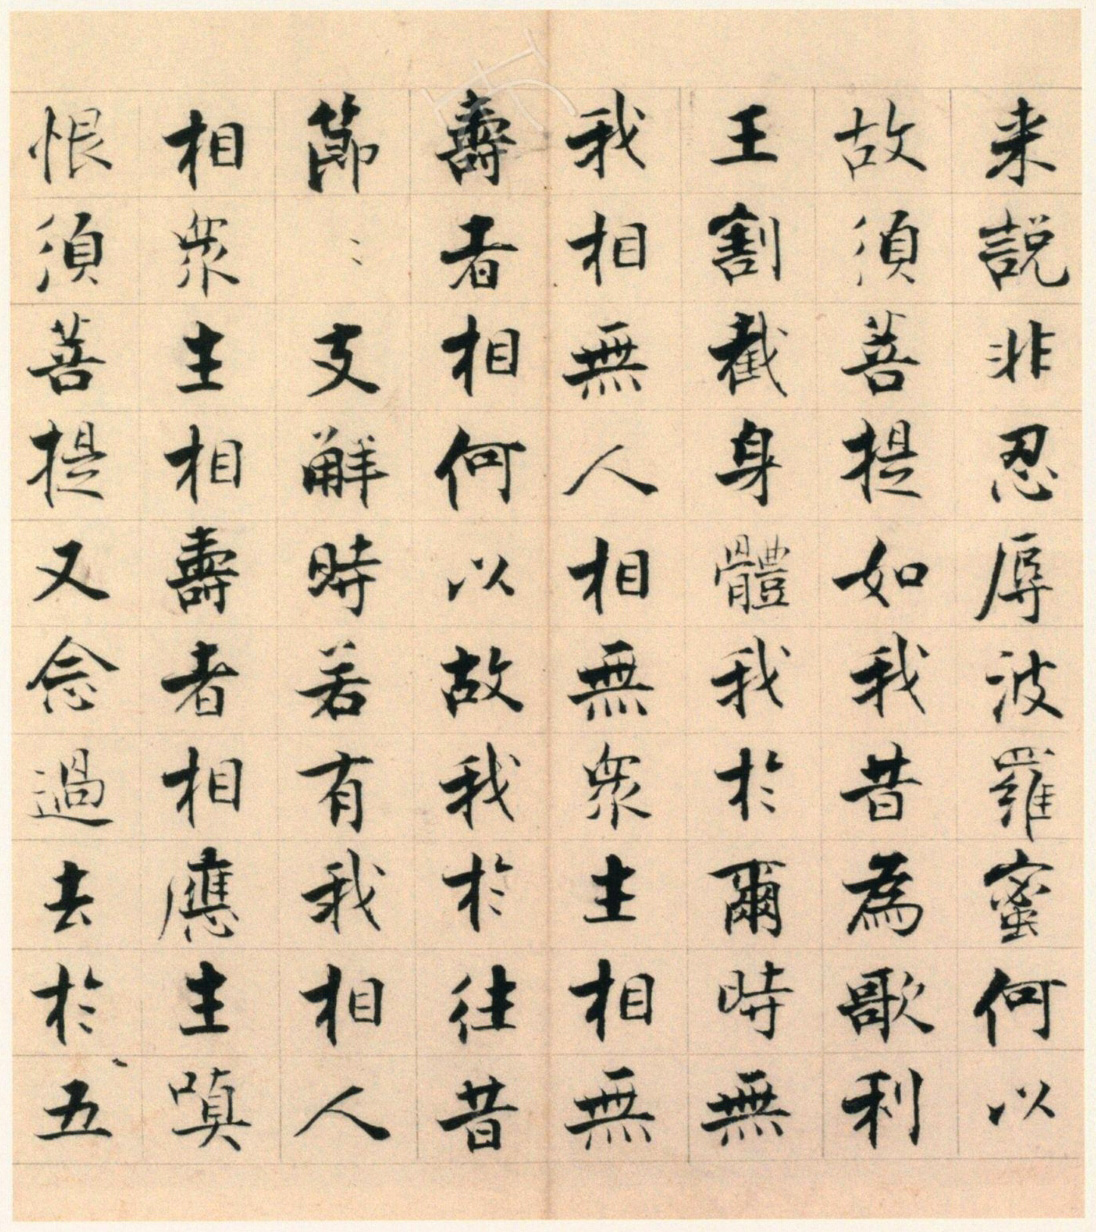 来說非忍辱波羅蜜何以
故須菩提如我昔為歌利
王割截身體我於爾時無
我相無人相無衆生相無
壽者相何以故我於往昔
節〻支解時若有我相人
相衆生相壽者相應生嗔
恨須菩提又念過去於五